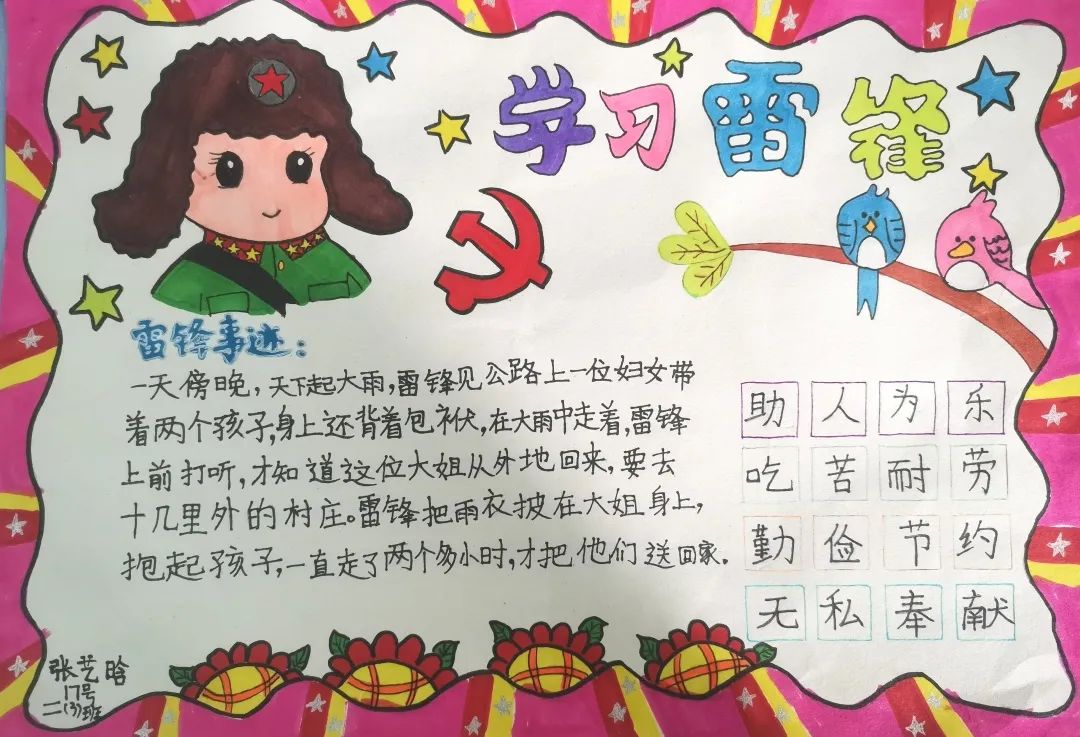 学习雷锋
雷锋事迹：
一天傍晚，天下起大雨，雷锋见公路上一位妇女带
着两个孩子，身上还背着包袱，在大雨中走着，雷锋
上前打听，才知道这位大姐从外地回来，要去
十几里外的村庄。雷锋把雨衣披在大姐身上，
抱起孩子，一直走了两个多小时，才把他们送回家。
助人为乐
吃苦耐劳
勤俭节约
无私奉献
张艺晗
17号
二(3)班